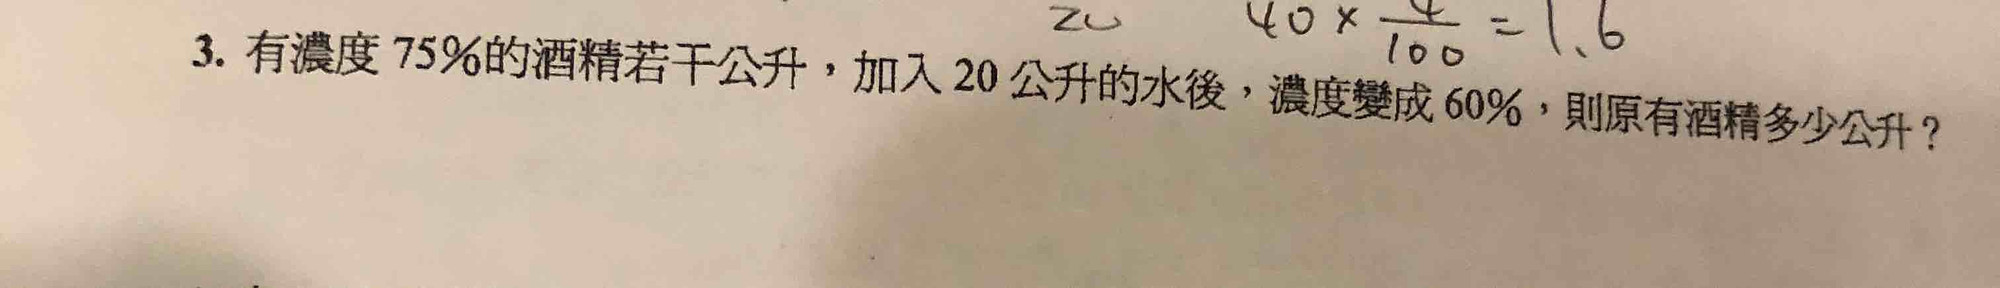 20 40 × 4/100 = 1.6
3. 有濃度 75%的酒精若干公升，加入 20 公升的水後，濃度變成 60%，則原有酒精多少公升？